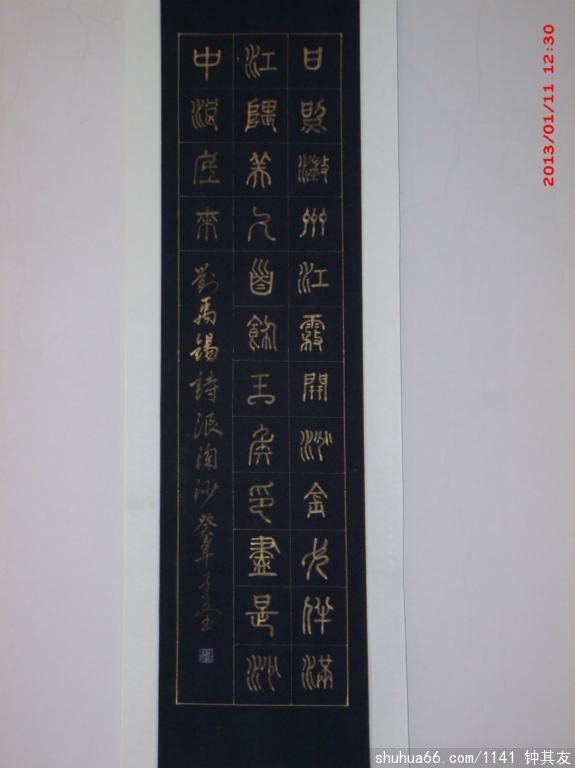 日照澂州江霧開淘金女伴滿
江隈美人首飾王侯印盡是沙
中浪底來
劉禹錫詩浪淘沙
2013/01/11 12:30
shuhua66.com/1141 钟其友